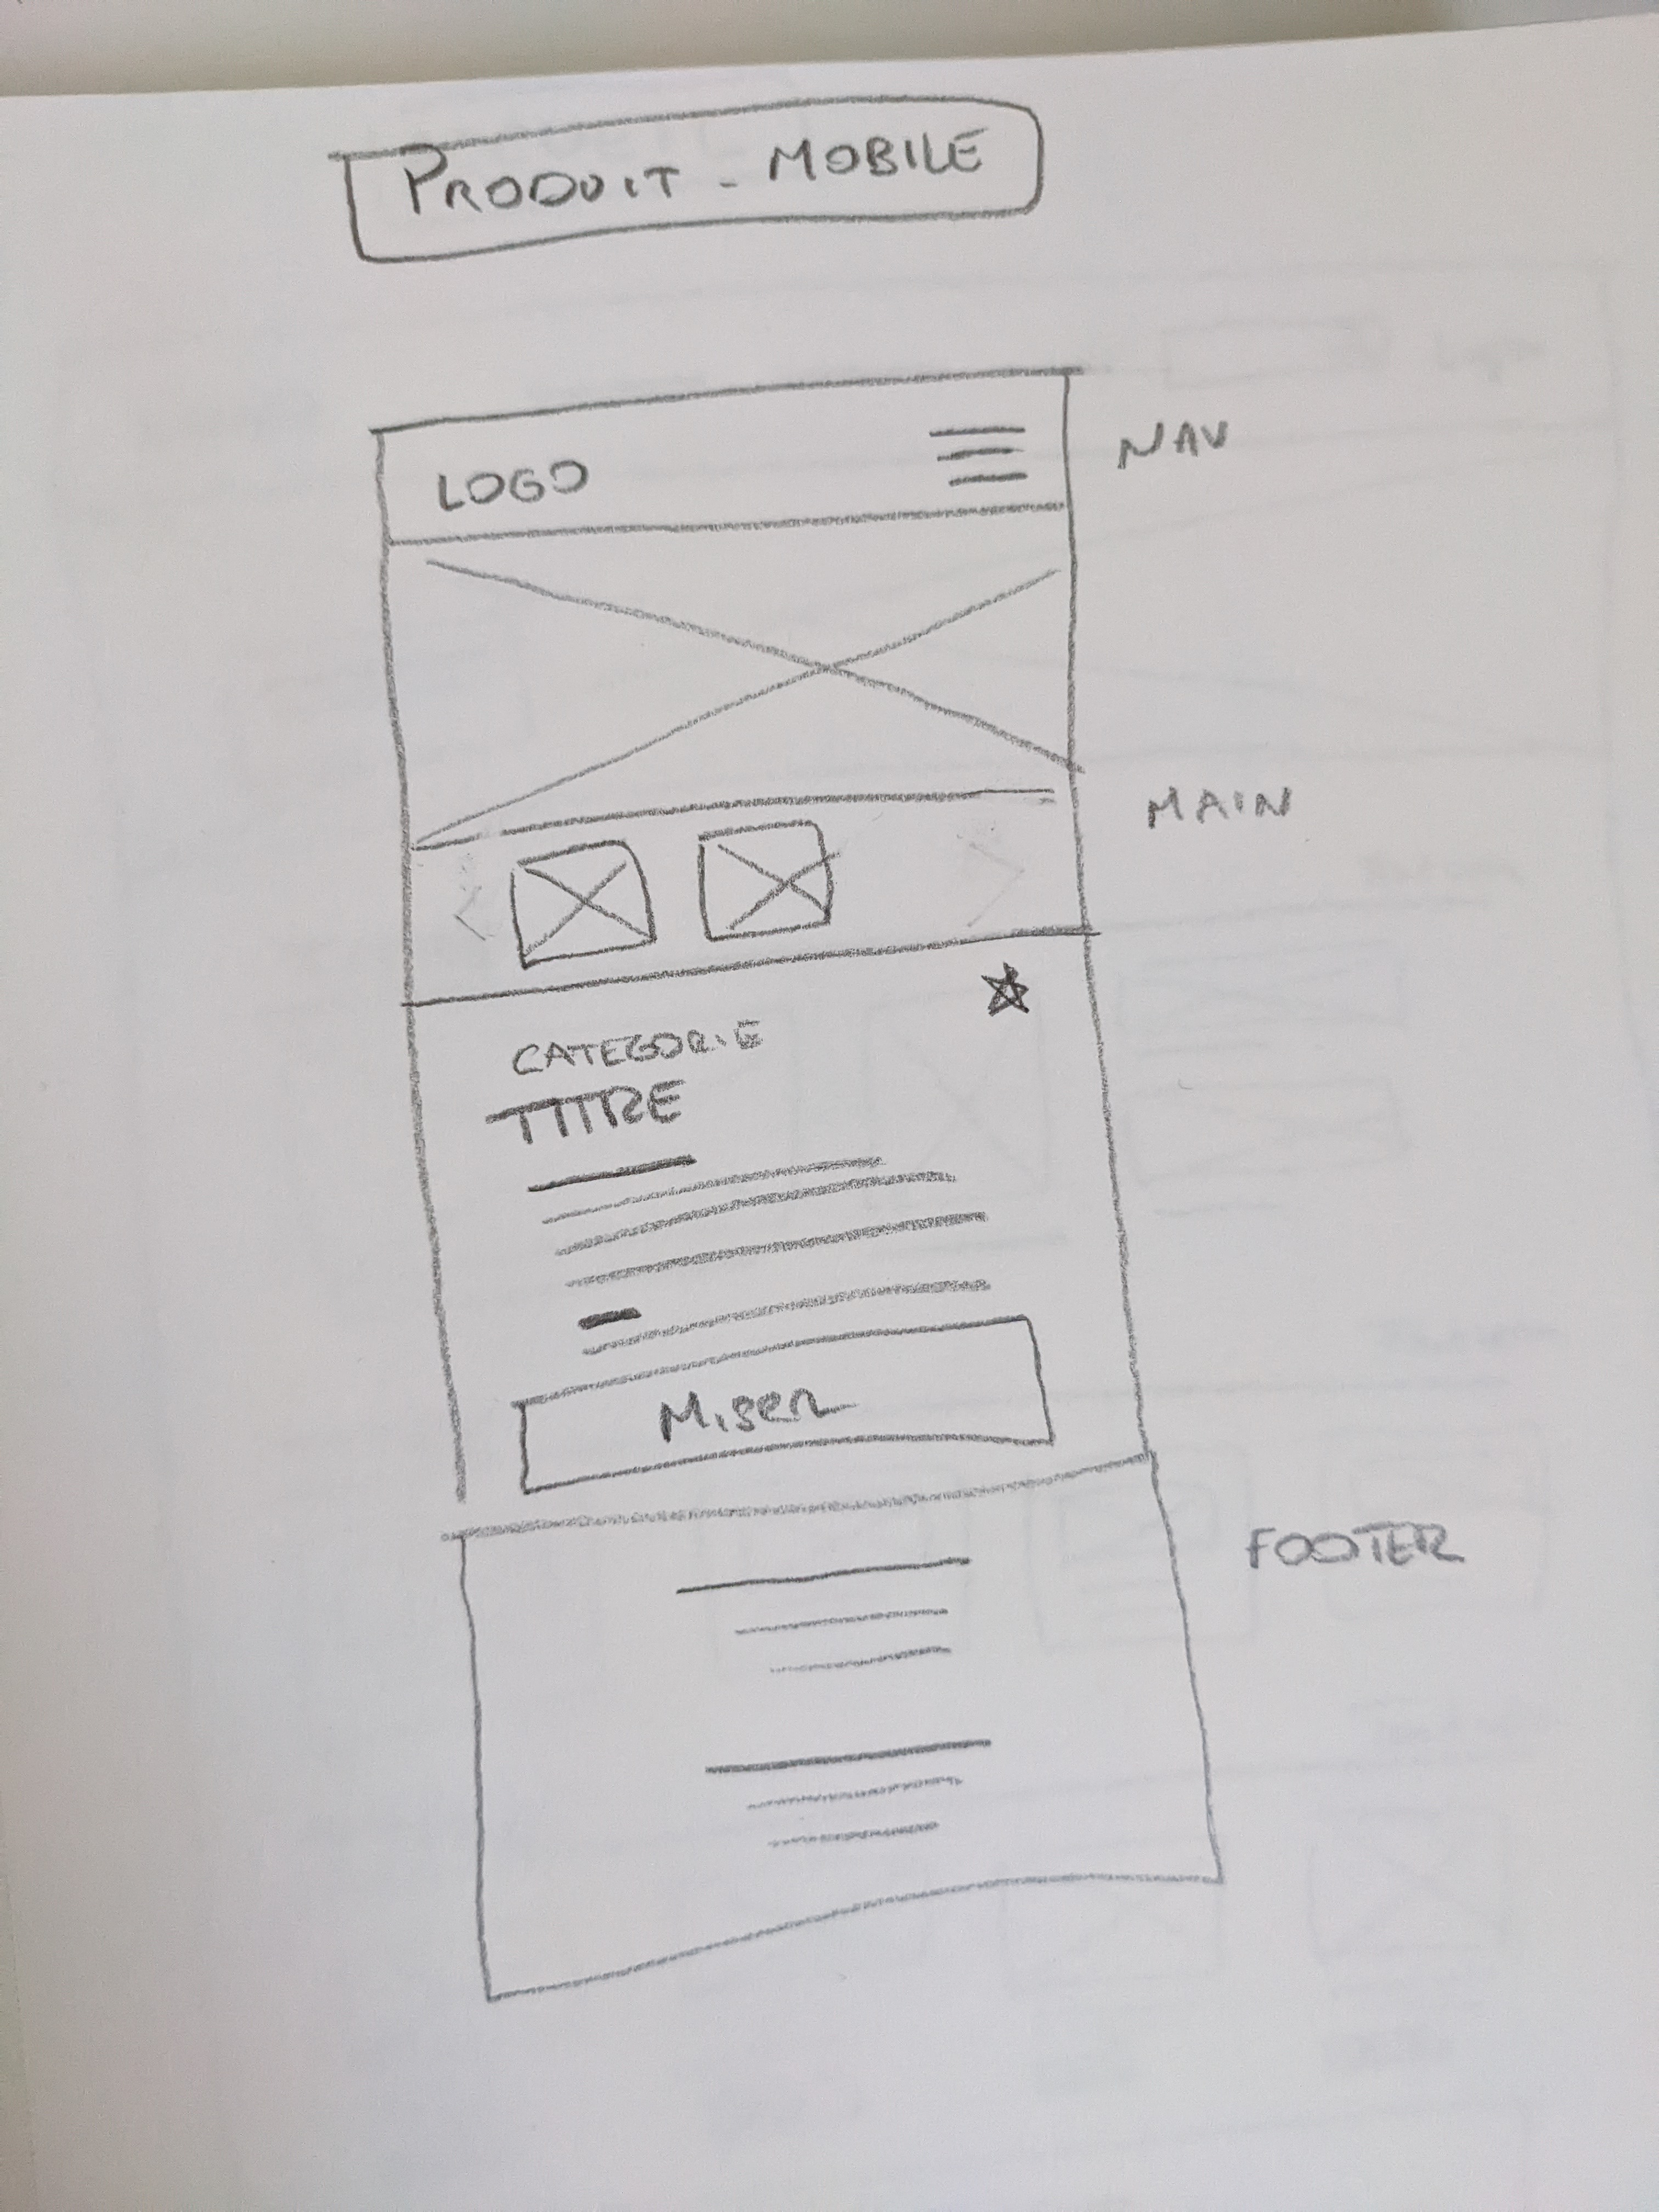 PRODUIT - MOBILE
LOGO
NAV
MAIN
CATEGORIE
TITRE
Miser
FOOTER